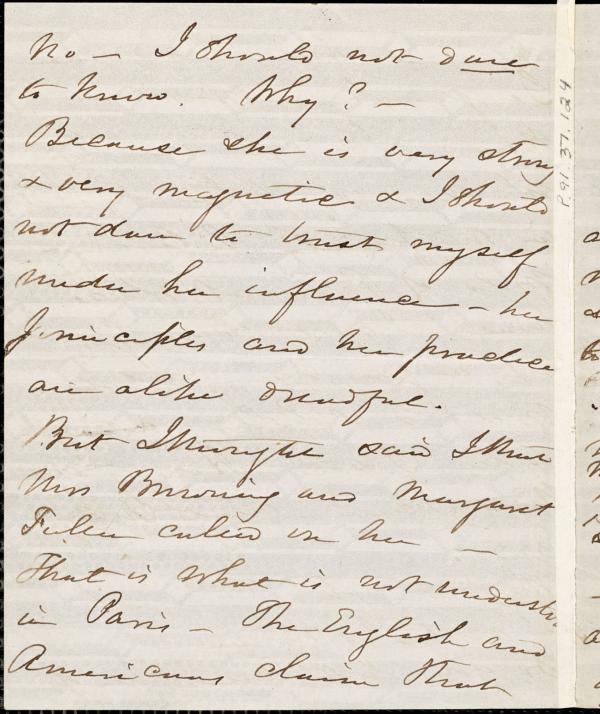 No — I should not dare
to know. Why? —
Because she is very strong
& very magnetic & I should
not dare to trust myself
under her influence – her
principles and her practice
are alike dreadful.
But I thought said I that
Mrs Browning and Margaret
Fuller called on her —
That is what is not underst
in Paris – The English and
Americans claim that
P.91.37.124